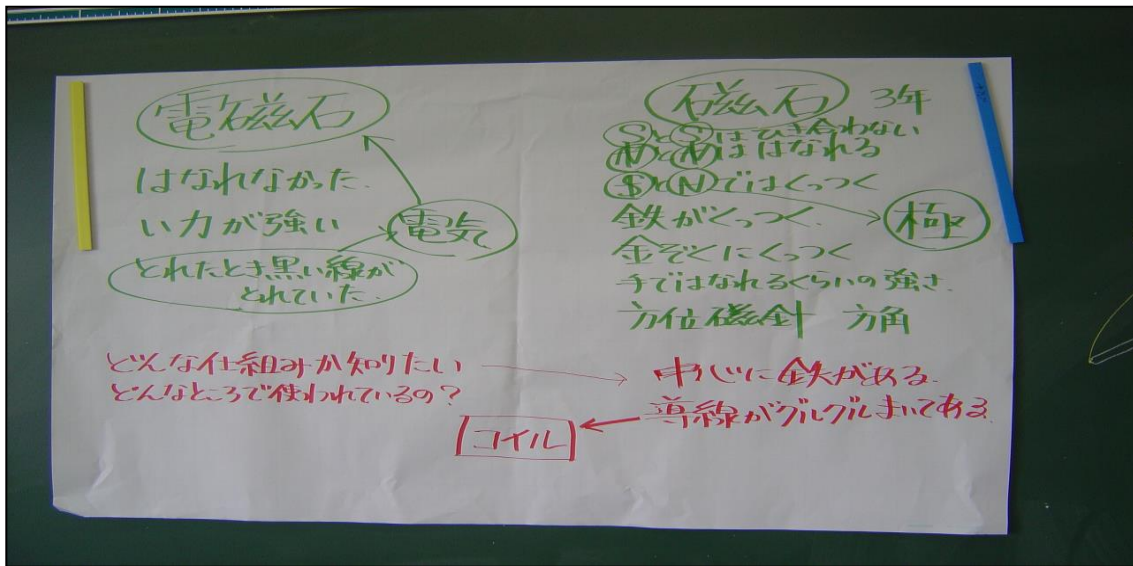 電磁石
はなれなかった.
い力が強い
電気
とれたとき黒い線が
とれていた.
磁石 3年
SとSはひき合わない
NとNははなれる
SとNではくっつく
鉄がくっつく.
極
金ぞくにくっつく
手ではなれるくらいの強さ.
方位磁針 方角
どんな仕組みか知りたい
どんなところで使われているの?
中心に鉄がある.
導線がグルグルまいてある.
コイル